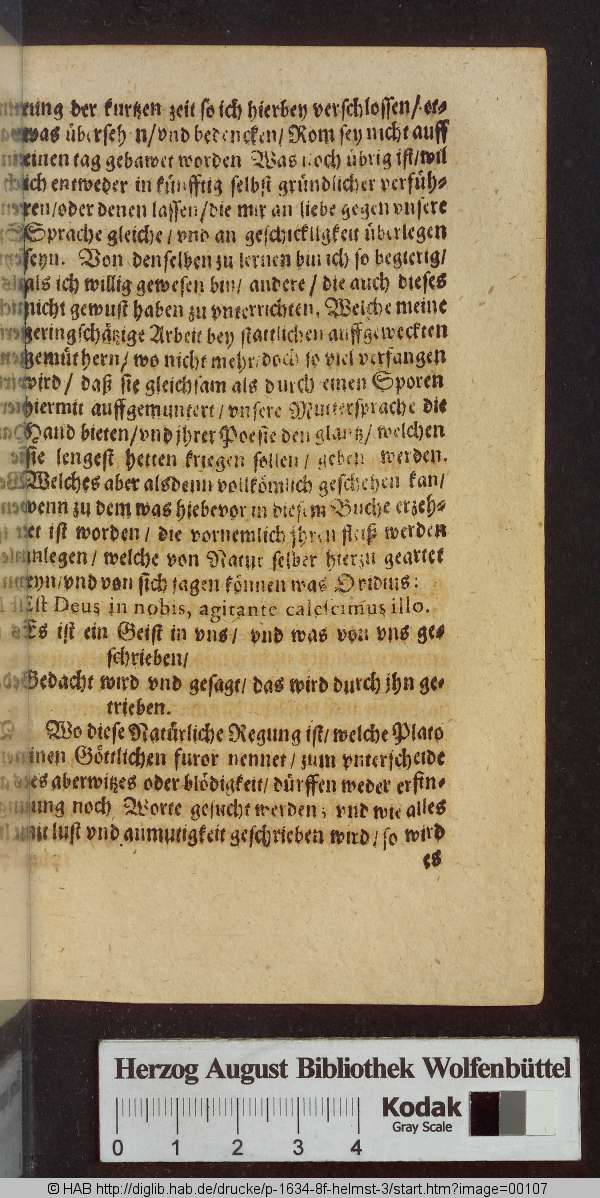 rung der kurtzen zeit so ich hierbey verschlossen/ et⸗
was überseh n/ vnd bedencken/ Rom sey nicht auff
einen tag gebawet worden Was noch übrig ist/ wil
ich entweder in künfftig selbst gründlicher verfüh⸗
ren/ oder denen lassen/ die mir an liebe gegen vnsere
Sprache gleiche/ vnd an geschickligkeit überlegen
seyn. Von denselben zu lernen bin ich so begierig/
als ich willig gewesen bin/ andere/ die auch dieses
nicht gewust haben zu vnterrichten. Welche meine
geringschätzige Arbeit bey stattlichen auffgeweckten
gemüthern/ wo nicht mehr/ doch so viel verfangen
wird/ daß sie gleichsam als durch einen Sporen
hiermit auffgemuntert/ vnsere Muttersprache die
Hand bieten/ vnd jhrer Poesie den glantz/ welchen
sie lengest hetten kriegen sollen/ geben werden.
Welches aber alsdenn vollkömlich geschehen kan/
wenn zu dem was hiebevor in diesem Buche erzeh⸗
et ist worden/ die vornemlich jhren fleiß werden
anlegen/ welche von Natur selber hierzu geartet
seyn/ vnd von sich sagen können was Ovidius:
Est Deus in nobis, agitante calescimus illo.
Es ist ein Geist in vns/ vnd was von vns ge⸗
schrieben/
Gedacht wird vnd gesagt/ das wird durch jhn ge⸗
trieben.
Wo diese Natürliche Regung ist/ welche Plato
einen Göttlichen furor nennet/ zum vnterscheide
des aberwitzes oder blödigkeit/ dürffen weder erfin⸗
dung noch Worte gesucht werden; vnd wie alles
mit lust vnd anmutigkeit geschrieben wird/ so wird
es
Herzog August Bibliothek Wolfenbüttel
Kodak
Gray Scale
0 1 2 3 4
© HAB http://diglib.hab.de/drucke/p-1634-8f-helmst-3/start.htm?image=00107